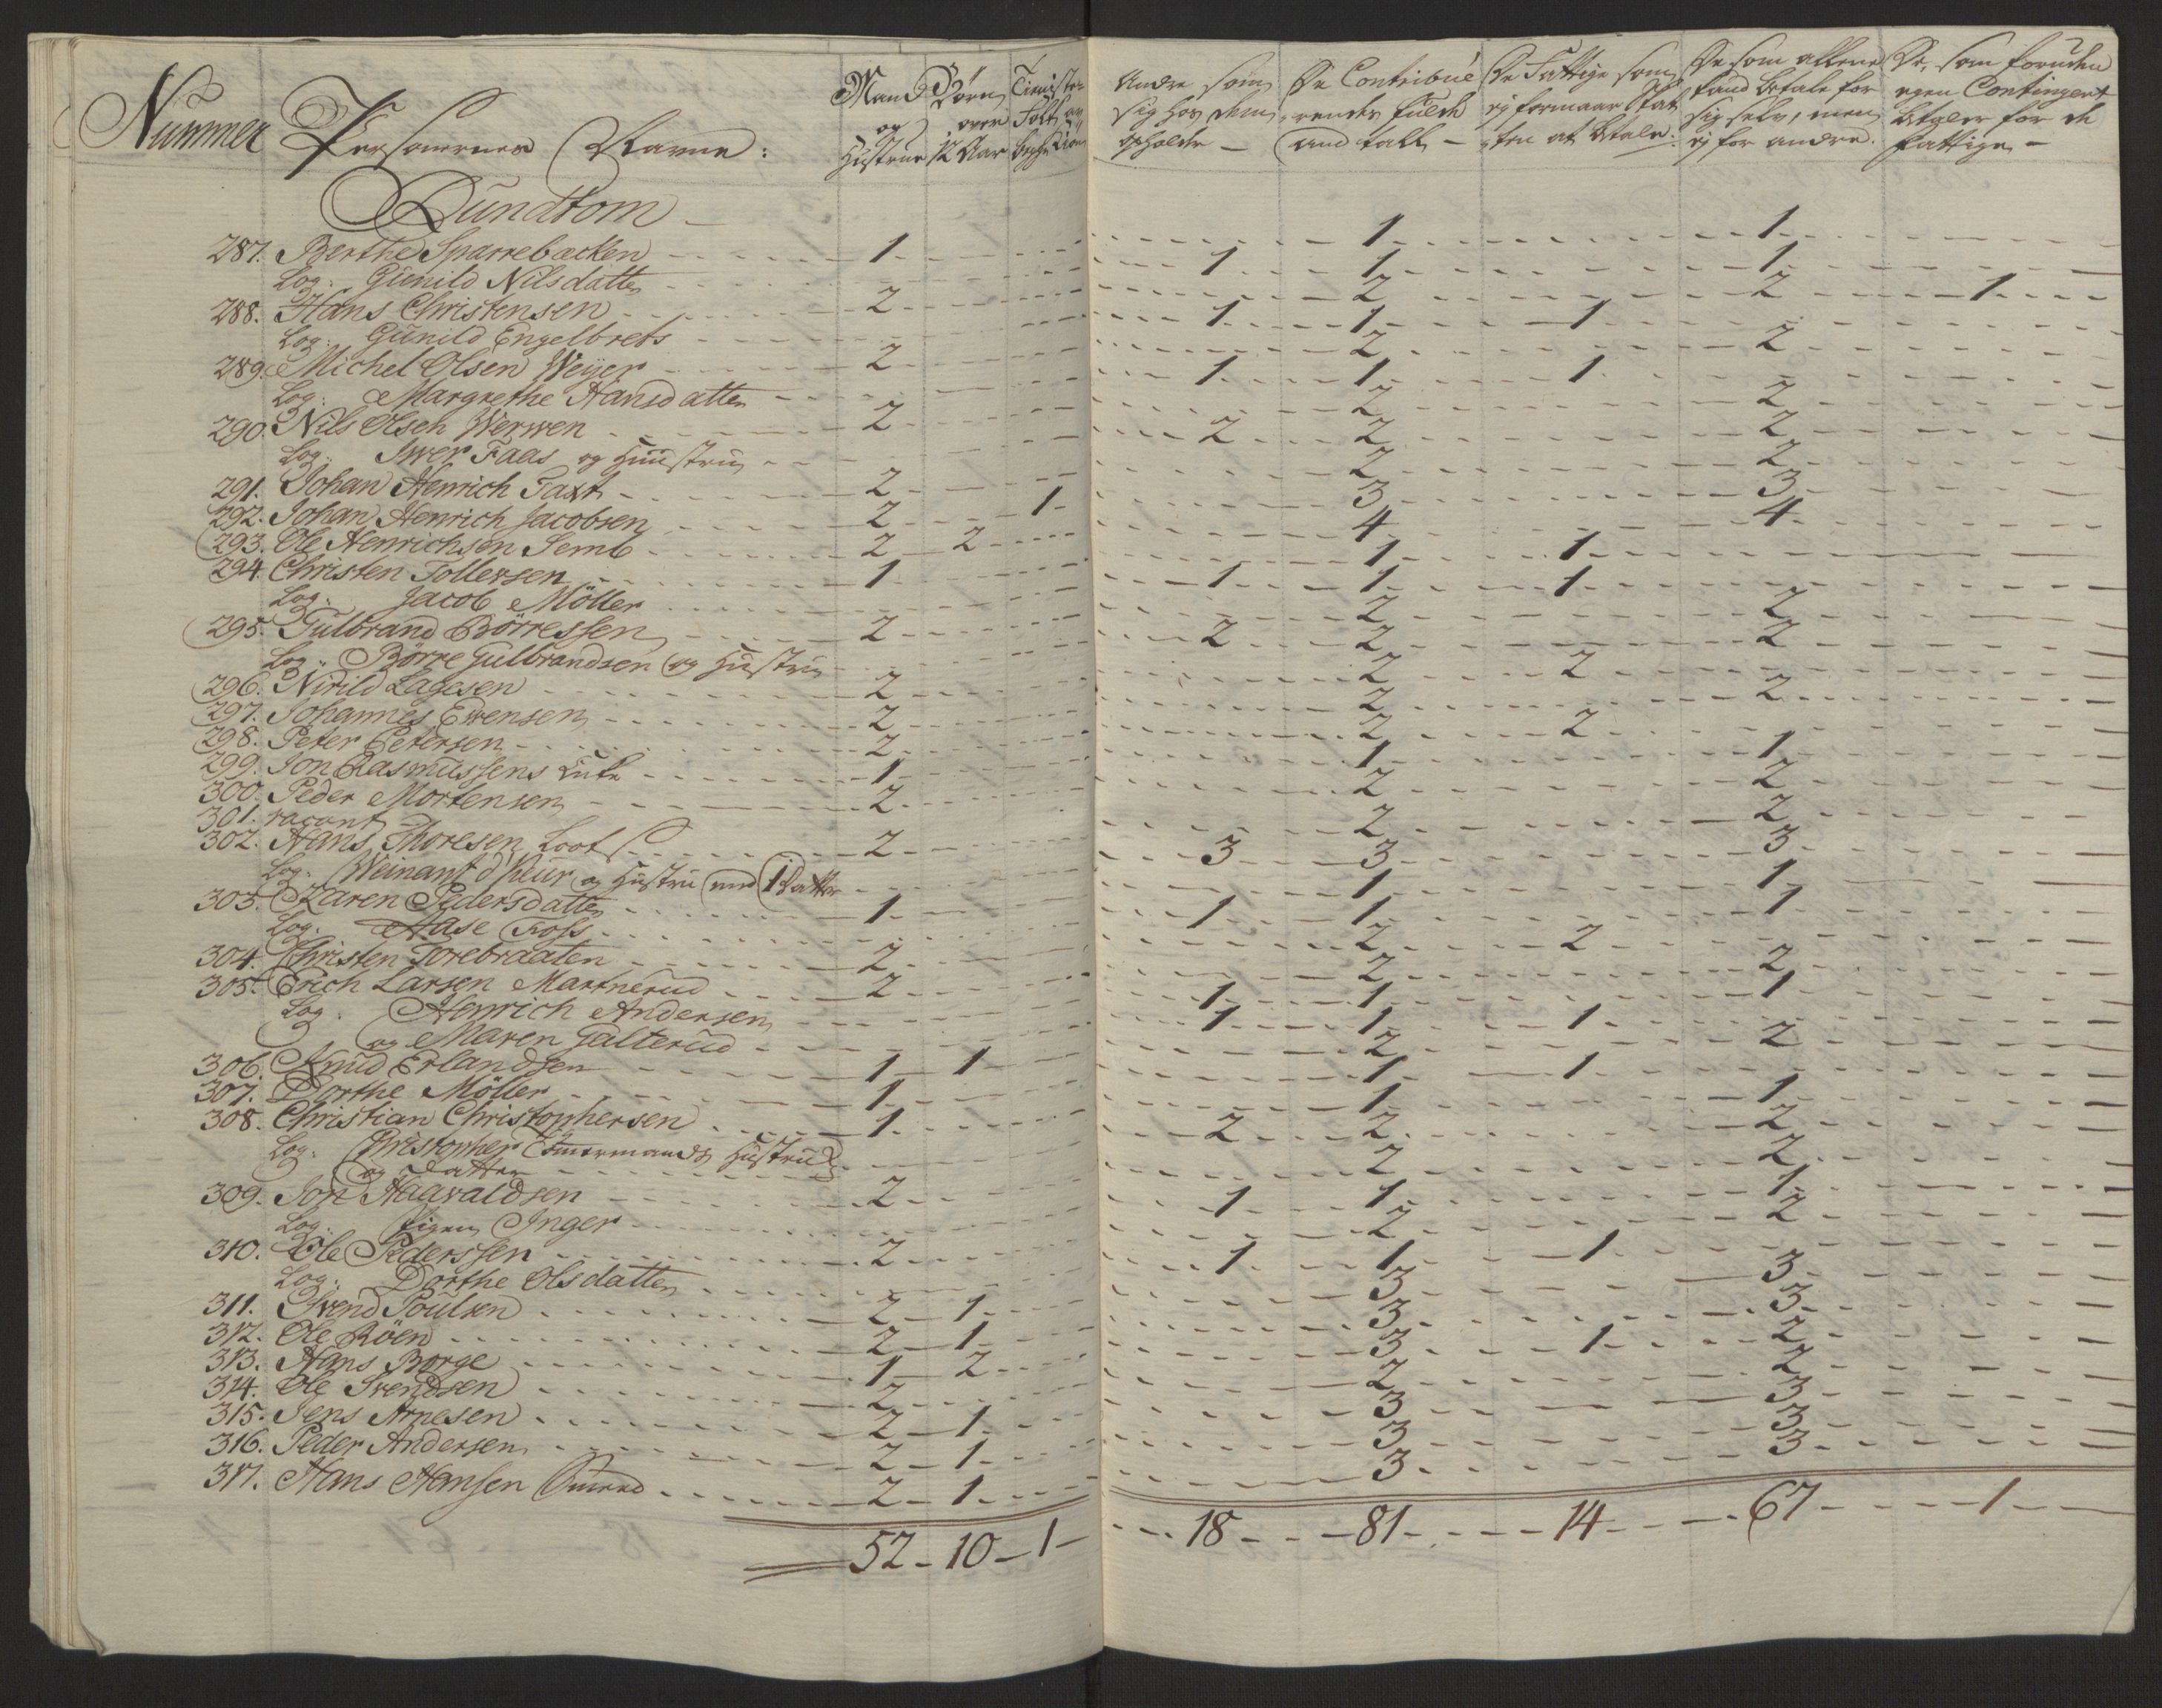 Nummer Personernes Navne: Mand og Hustrue Børn over 12 Aar Tieniste Folk og Andre som sig hos dem opholde – De Contribuerendes fulde Antall – De Fattige som ej formaar Skatten at betale. De som alleene kand betale for sig selv, men ej for andre. De, som foruden egen Contingent betaler for de fattige –
Bundtom
287. Berthe Sparrebæcken 1 1 1
Log: Gunild Nilsdatter 1 1 1
288. Hans Christensen 2 2 2 1
Log: Gunild Engelbrets 1 1 1
289. Michel Olsen Weyer 2 2 2
Log: Margrethe Hansdatter 1 1 1
290. Nils Olsen Werwen 2 2 2
Log: Iwer Faas og Huustru 2 2 2
291. Johan Henrich Taxt 2 2 2
292. Johan Henrich Jacobsen 2 1 3 3
293. Ole Henrichsen Semb 2 2 4 4
294. Christen Tollersen 1 1 1
Log: Jacob Möller 1 1 1
295. Gulbrand Börressen 2 2 2
Log: Börre Gulbrandsen og Hustru 2 2 2
296. Nirild Lagesen 2 2 2
297. Johannes Evensen 2 2 2
298. Peter Petersen 2 2 2
299. Jon Rasmussens Enke 1 1 1
300. Peder Mortensen 2 2 2
301. vacant
302. Hans Thoresen Loots 2 2 2
Log: Weinant og Hustru med 1 Datter 3 3 3
303. Karen Pedersdatter 1 1 1
Log: Aase Foss 1 1 1
304. Christen Torebraaten 2 2 2
305. Erich Larsen Martnerud 2 2 2
Log: Henrich Andersen 1 1 1
og Maren Galterud 1 1 1
306. Knud Erlandsen 1 1 2 2
307. Dorthe Möller 1 1 1
308. Christian Christophersen 1 1 1
Log: Christopher Tömermands Hustru
og Datter 2 2 2
309. Jon Hagvaldsen 2 2 2
Log: Pigen Inger 1 1 1
310. Ole Pederssen 2 2 2
Log: Dorthe Olsdatter 1 1 1
311. Svend Poulsen 2 1 3 3
312. Ole Röen 2 1 3 3
313. Hans Borge 1 2 3 1 2
314. Ole Svendsen 2 2 2
315. Jens Arnesen 2 1 3 3
316. Peder Andersen 2 1 3 3
317. Hans Hansen Smed 2 1 3 3
52 10 1 18 81 14 67 1